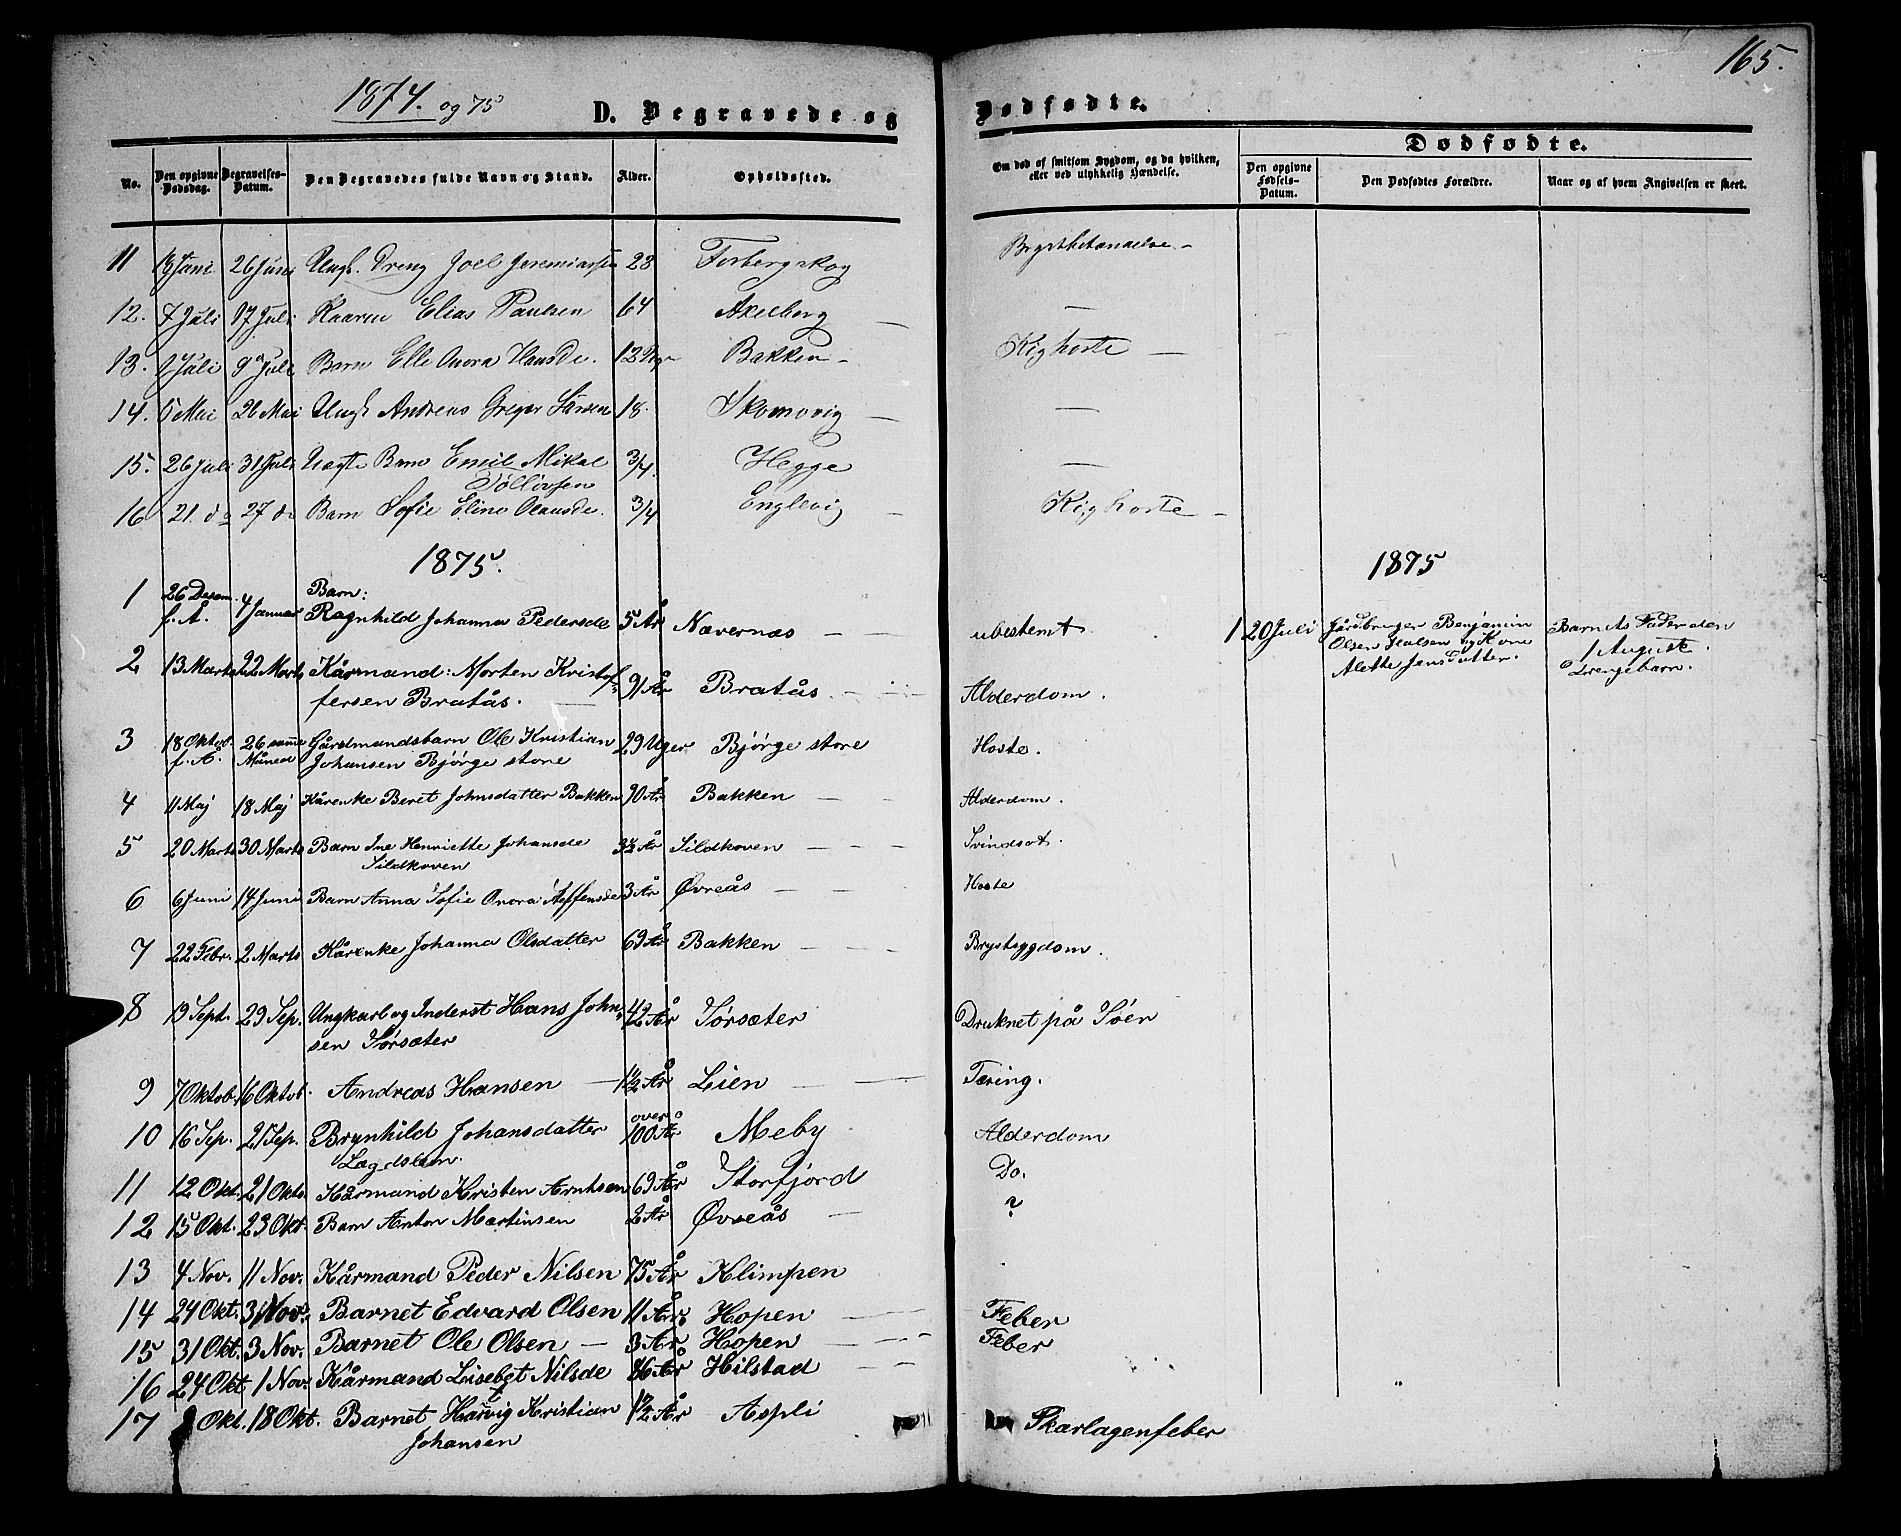 165.
1874. og 75
D. Begravede og Dødfødte.
No. | Den opgivne Dødsdag. | Begravelses-Datum. | Den Begravedes fulde Navn og Stand. | Alder. | Opholdssted. | Om død af smitsom Sygdom, og da hvilken, eller ved ulykkelig Hændelse. | Dødfødte. | Den opgivne Fødsels-Datum. | Den Dødfødtes Forældre. | Naar og af hvem Angivelsen er skeet.
11 | Juni | 26 Juni | Ungk. Dreng Joel Jeremiassen | 23 | Forbergskog | Brystbetændelse -
12. | 7 Juli | 17 Juli | Kaaren Elias Paulsen | 64 | Akelberg — | —
13. | 2 Juli | 9 Juli | Barn Elle Onora Hansde. | 12 | Bakken - | Kighoste —
14. | 5 Mai | 26 Mai | Ungk Andreas Greger Larsen | 18. | Skomovig — | —
15. | 26 Juli | 31 Juli | Uægte Barn Emil Mikal | 3/4. | Hegge | —
Tollivsen
16 | 21. do | 27 do | Barn Sofie Eline Olausde. | 3/4 | Englevig — | Kighoste -
1875. | 1875
1 | 26 Desem. f. Å. | 4 Januar | Barn:
Ragnhild Johanna Pedersde | 5 År | Nævernæs — — | ubestemt. | 1 | 20 Juli | Gårdbruger Benjamin | Barnets Fader den
Olsen og Kone | 1 August.
Alette Jensdatter. | Drengebarn.
2 | 13 Marts | 22 Marts | Kårmand: Morten Kristof- | 91 År | Bratås. — | Alderdom.
fersen Bratås.
3 | 18 Oktob. f. Å. | 26 samme Måned | Gårdmandsbarn Ole Kristian | 29 Uger | Bjørge store | Hoste.
Johansen Bjørge store
4 | 11 Maj | 18 Maj | Kårenke Beret Johnsdatter Bakken | 90 År | Bakken — — | Alderdom.
5 | 20 Marts | 30 Marts | Barn Ine Henriette Johansde | 3½ År | Sildkoven — — | Svindsot.
Sildkoven
6 | 6 Juni | 14 Juni | Barn Anna Sofie Onora | 3 År | Øvreås — — | Hoste
7 | 22 Febr. | 2 Marts | Kårenke Johanna Olsdatter | 69 År | Bakken — — | Brystsygdom.
8 | 19 Sept. | 29 Sep. | Ungkarl og Inderst Hans John- | 42 År | Sørsæter | Druknet på Søen
sen Sørsæter
9 | 7 Oktob. | 16 Oktob. | Andreas Hansen — | 1½ År | Leien — — | Tæring.
10 | 16 Sep. | 21 Sep. | Brynhild Johansdatter | over 100 År | Meby | Alderdom
Lægdslem.
11 | 12 Okt. | 21 Okt. | Kårmand Kristen Arntsen | 69 År | Storfjord | Do.
12 | 15 Okt. | 23 Okt | Barn Anton Martinsen | 2 År | Øvreås — | ?
13 | 4 Nov. | 11 Nov. | Kårmand Peder Nilsen | 75 År | Klimpen
14 | 24 Okt. | 3 Nov. | Barnet Edvard Olsen | 11 År | Hopen — | Feber
15 | 31 Okt. | 3 Nov. | Barnet Ole Olsen — | 3 År | Hopen — | Feber
16 | 24 Okt | 1 Nov. | Kårmand Lisebet Nilsde | År | Hilstad — —
17 | Okt. | 18 Okt. | Barnet Kristian | 1½ År | Aspli | Skarlagenfeber
Johansen